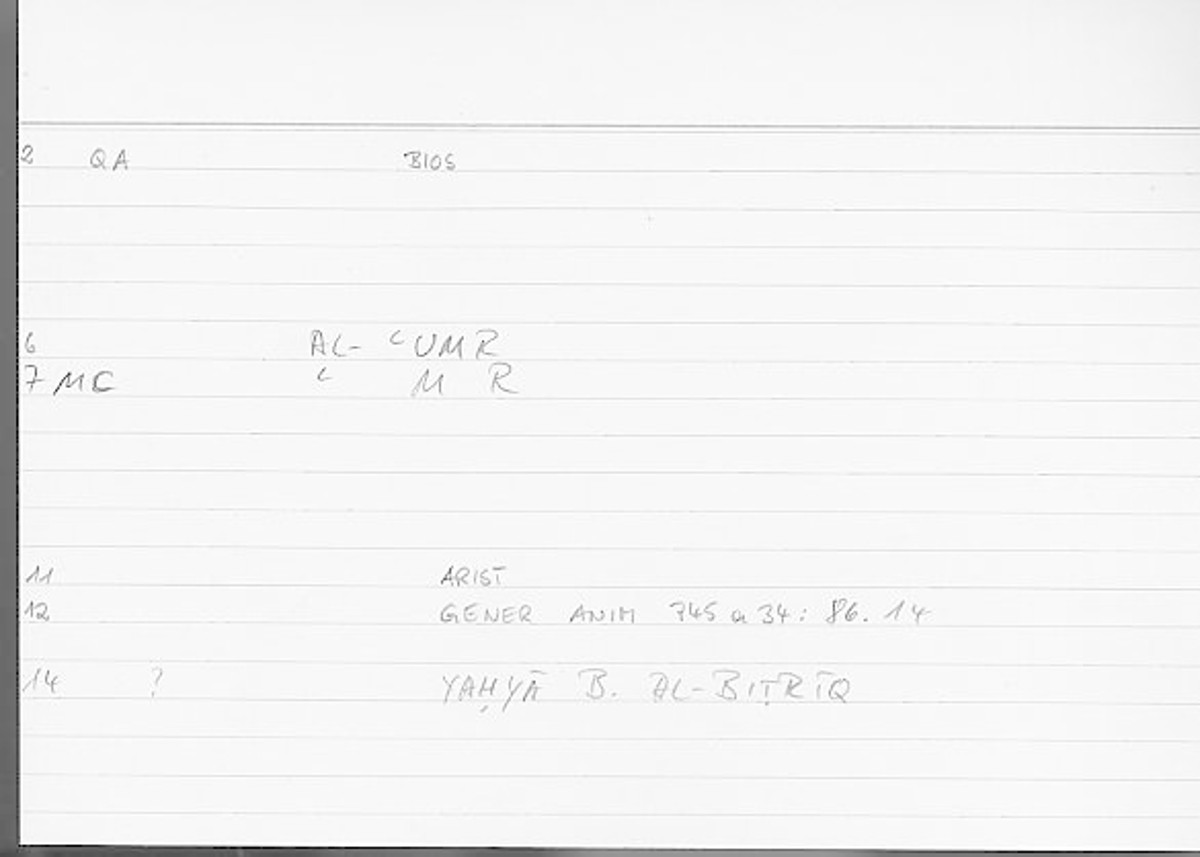 2 QA BIOS
6 AL- ʿUMR
7 MC ʿ M R
11 ARIST
12 GENER ANIM 745 a 34: 86. 14
14 ? YAḤYĀ B. AL-BIṬRĪQ